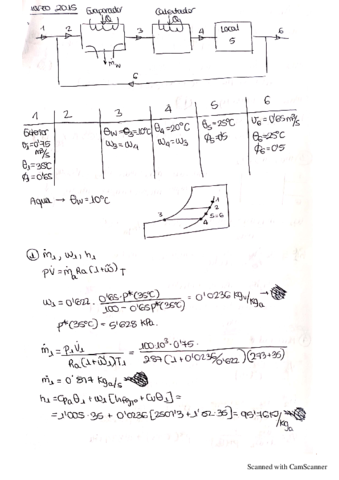 ENERO 2015
Evaporador
Calentador
Local
1
2
3
4
5
6
ṁw
6
1 2 3 4 5 6
Exterior
V̇1=0'75 m³/s
θ1=35ºC
ϕ1=0'65
θw=θ3=10ºC
ω3=ω4
θ4=20ºC
ω4=ω3
θ5=25ºC
ϕ5=0'5
V̇6=0'65 m³/s
θ6=25ºC
ϕ6=0'5
Agua → θw=10ºC
1
2
5-6
3
4
① ṁ1, ω1, h1
PV̇=ṁaRa(1+ω̃)T
ω1=0'622 · 0'65·p*(35ºC) / 100-0'65p*(35ºC) = 0'0236 kgv/kga →
p*(35ºC) = 5'628 kPa.
ṁ1 = P1V̇1 / Ra(1+ω̃1)T1 = 100·10³·0'75 / 287(1+0'0236/0'622)(273+35)
ṁ1 = 0'817 kga/s
h1=Cpaθ1+ω1[hfg,0+Cvθ1]=
=1'005·35+0'0236[2501'3+1'82·35]=95'76 kJ/kga
Scanned with CamScanner